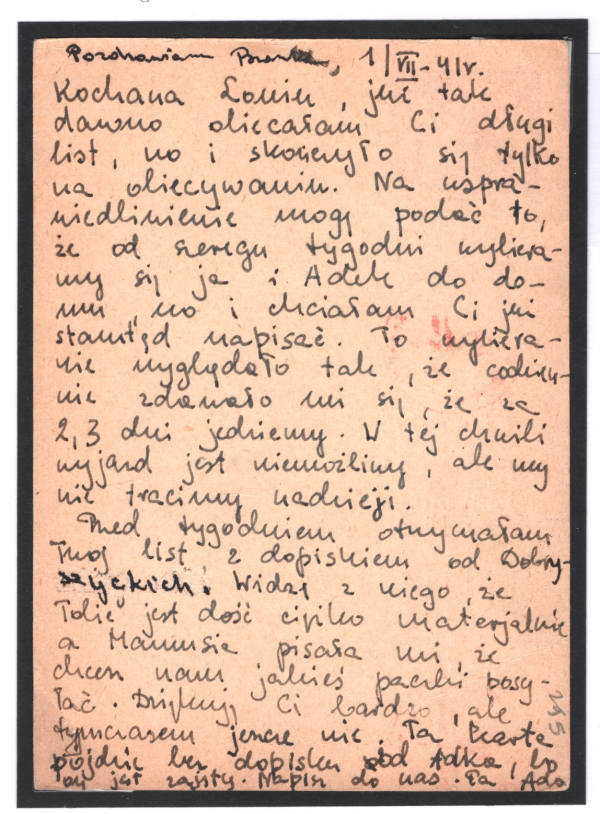 Pozdrawiam Bronka, 1/VII-41r.
Kochana Loniu, już tak
dawno obiecałam Ci długi
list, no i skończyło się tylko
na obiecywaniu. Na uspra-
wiedliwienie mogę podać to,
że od szeregu tygodni wybiera-
my się ja i Adek do do-
mu, no i chciałam Ci już
stamtąd napisać. To wybiera-
nie wyglądało tak, że codzien-
nie zdawało mi się, że za
2,3 dni jedziemy. W tej chwili
wyjazd jest niemożliwy, ale my
nie tracimy nadzieji.
Przed tygodniem otrzymałam
Twój list z dopiskiem od Dobry-
szyckich. Widzę z niego, że
Tobie jest dość ciężko materjalnie
a Mamusia pisała mi, że
chcesz nam jakieś paczki posy-
łać. Dziękuję Ci bardzo, ale
tymczasem jeszcze nie. Ta karta
pójdzie bez dopisku od Adka, bo
on jest zajęty. Napisz do nas. Pa Ada
245